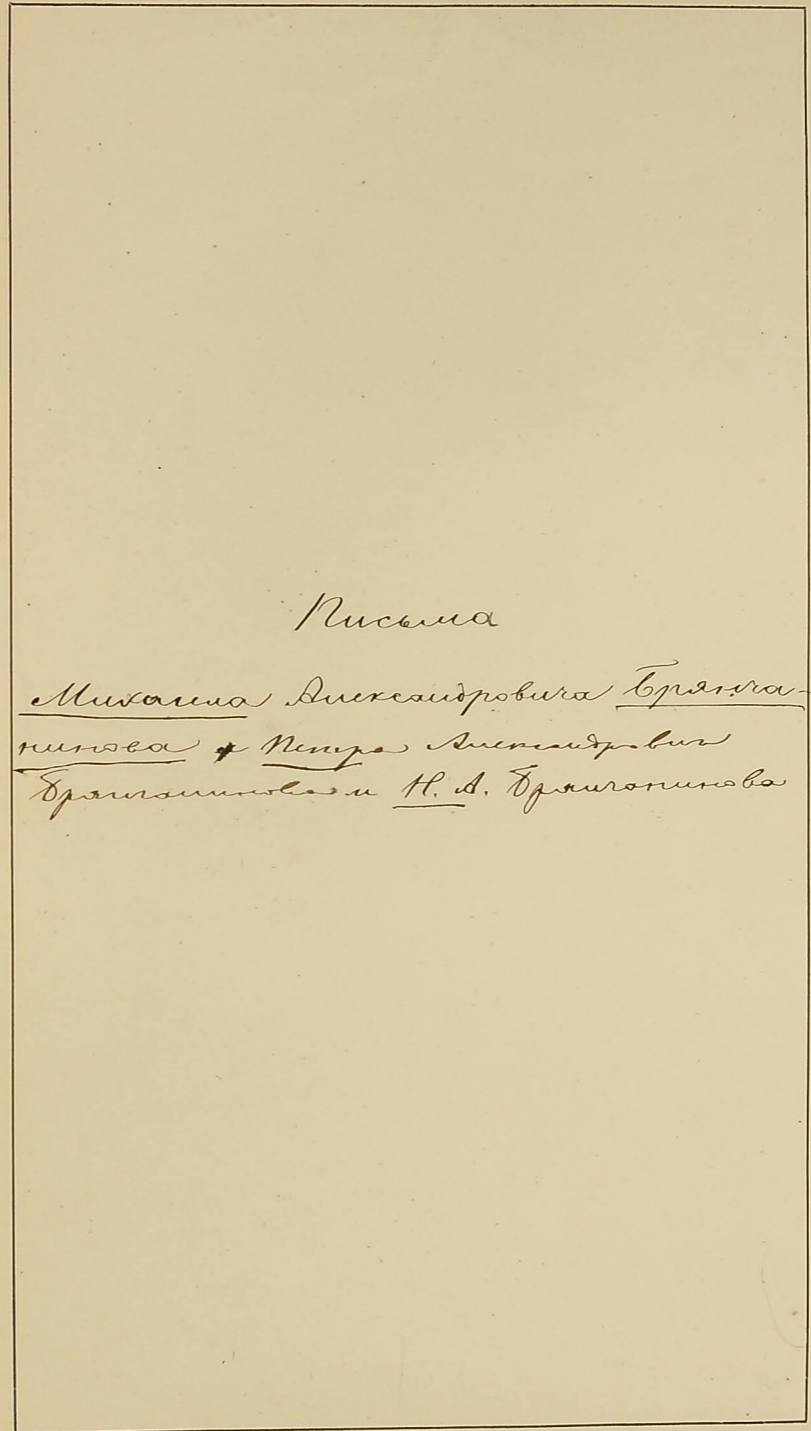 Письма
Михаила Александровича Брянча-
нинова, Петра Александрович
Брянчанинова и Н. А. Брянчанинова